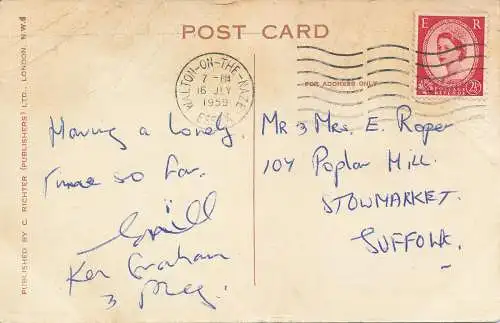 POST CARD
FOR ADDRESS ONLY
WALTON-ON-THE-NAZE
7 - PM
16 JLY
1959
ESSEX
E R
POSTAGE
REVENUE
2½
Having a lovely
time so far.
Ken Graham
Mr & Mrs. E. Roper
104 Poplar Hill.
STOWMARKET.
SUFFOLK.
PUBLISHED BY C. RICHTER (PUBLISHERS) LTD., LONDON, N.W.